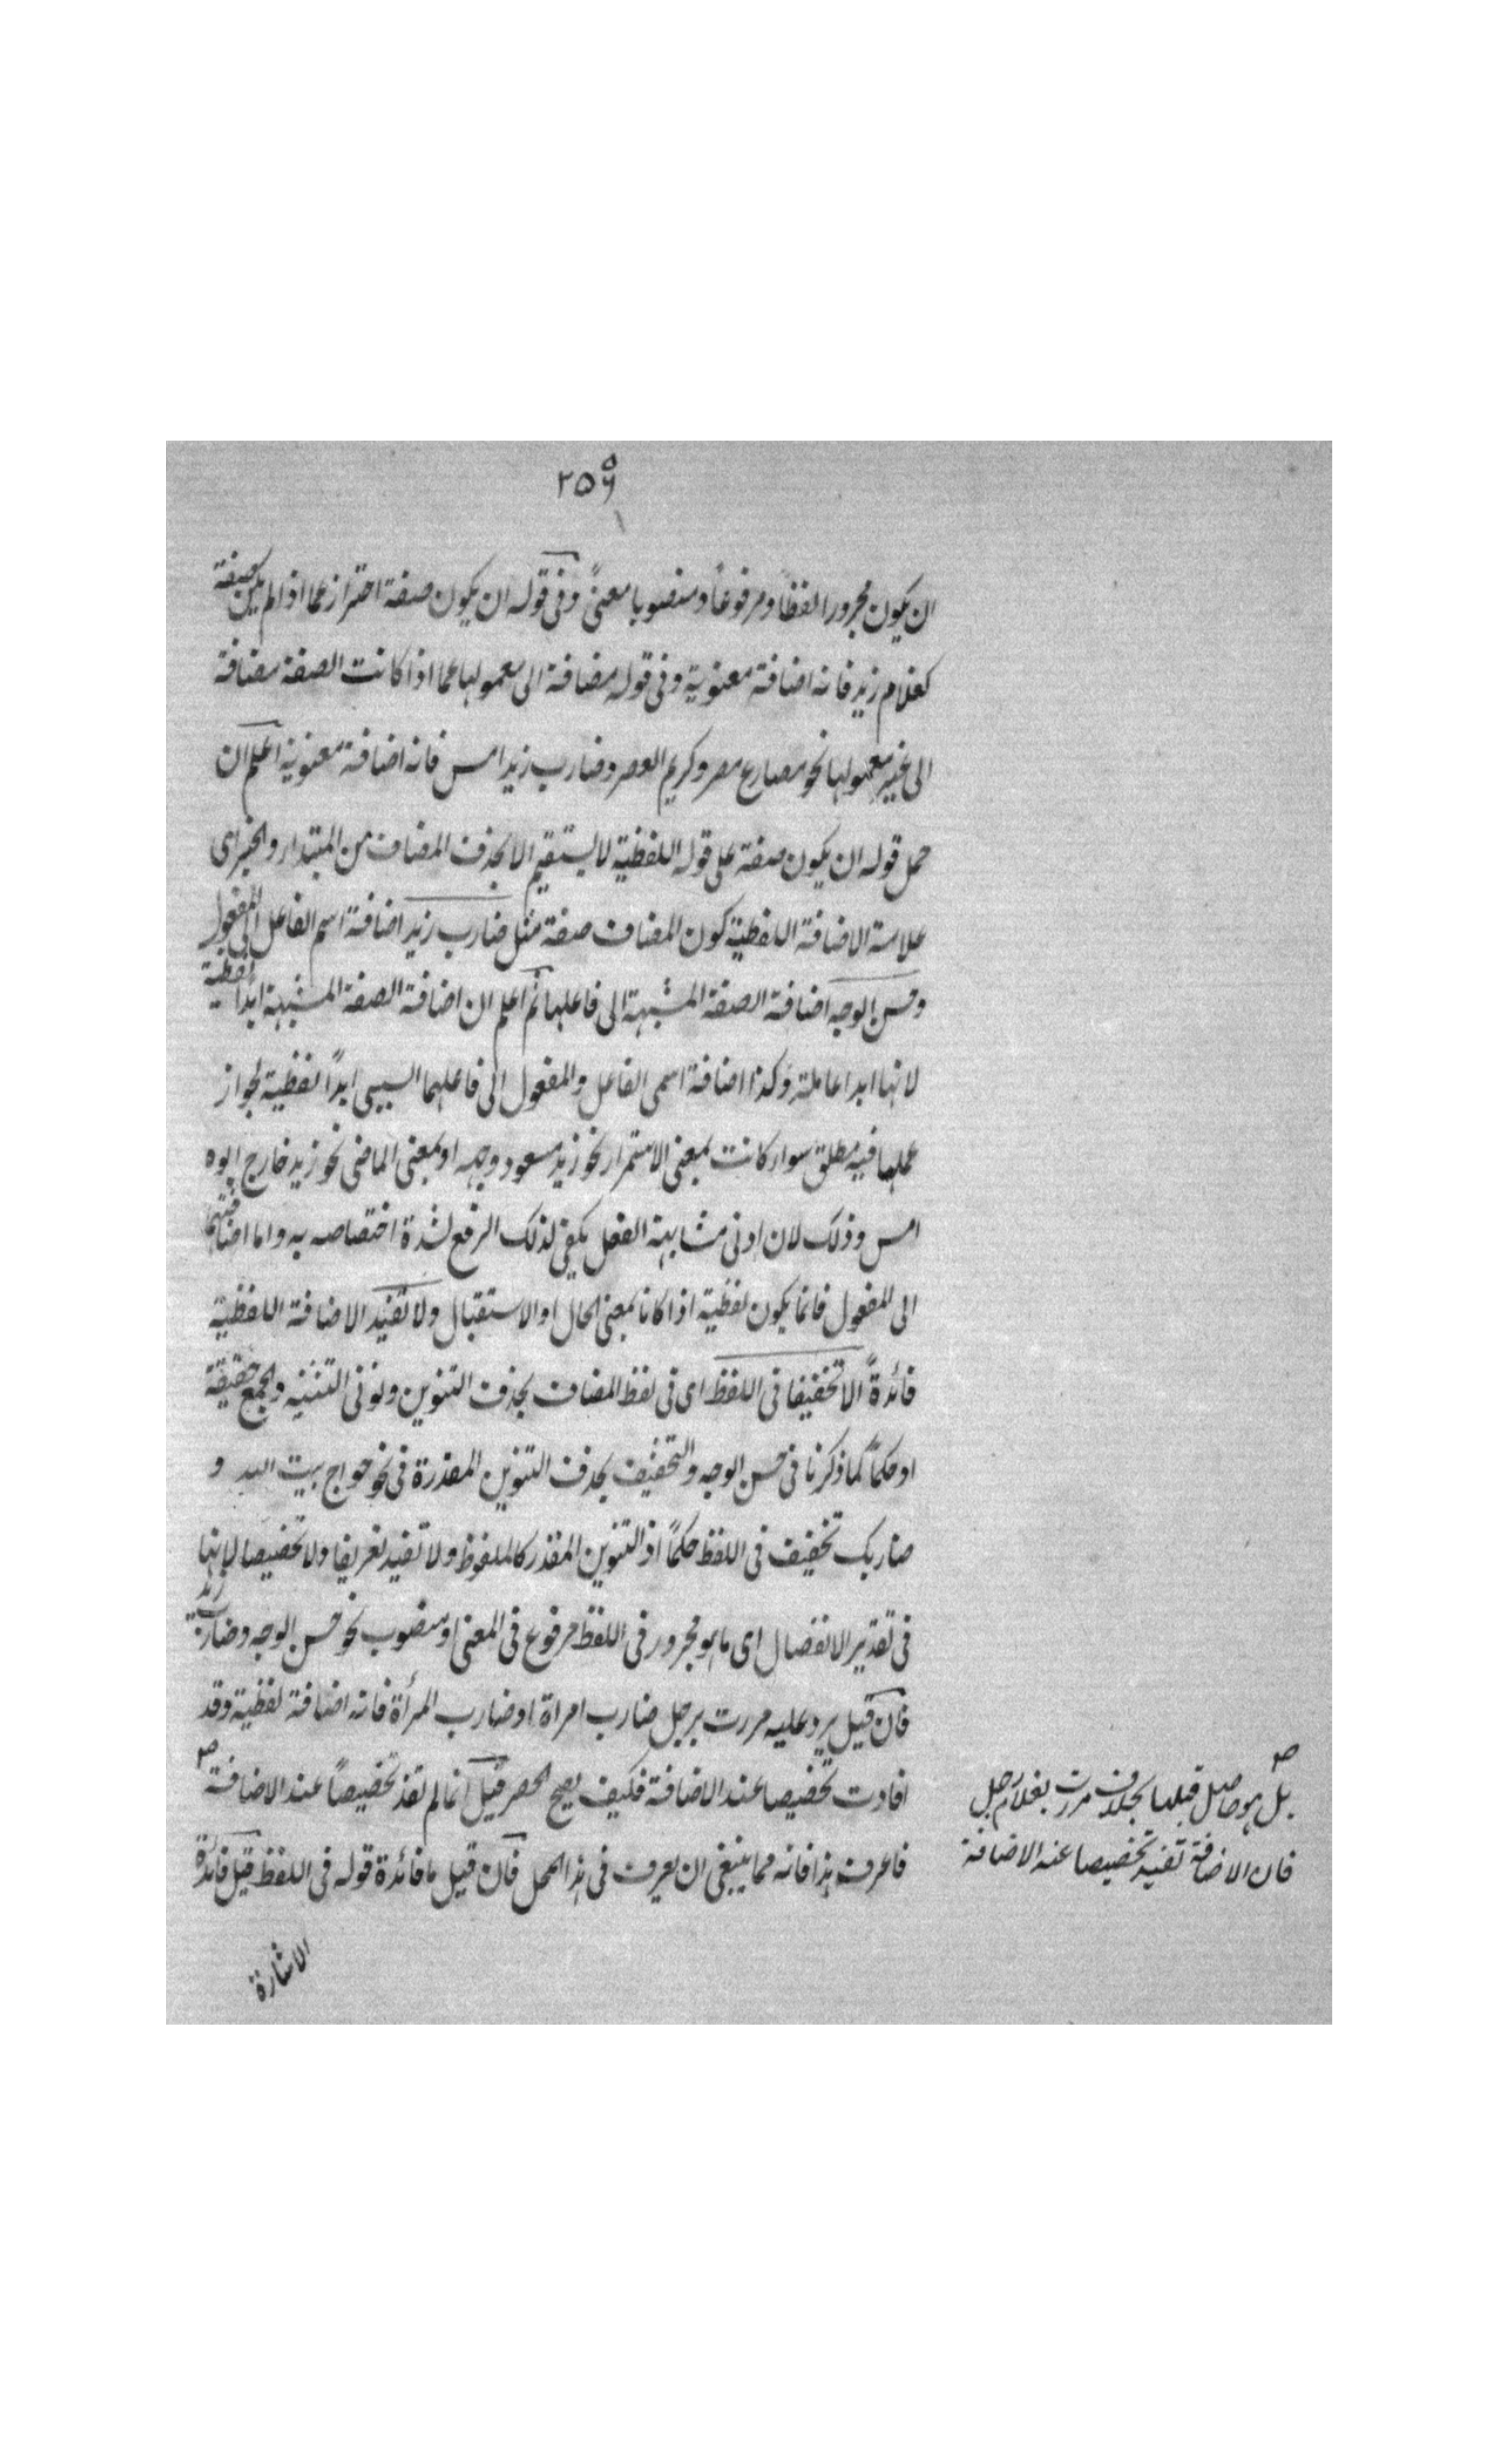 ٢٥٩
ان يكون مجرورا لفظاً ومرفوعاً ومنصوبا معنىً وفى قوله ان يكون صفة احتراز عما اذا لم يكن صفة
كغلام زيد فانه اضافة معنوية وفى قوله مضافة الى معمولها عما اذا كانت الصفة مضافة
الى غير معمولها نحو مصارع مصر وكريم العصر وضارب زيد امس فانه اضافة معنوية اعلم ان
حمل قوله ان يكون صفة على قوله اللفظية لا يستقيم الا بحذف المضاف من المبتداء والخبر اى
علامة الاضافة اللفظية كون المضاف صفة مثل ضارب زيد اضافة اسم الفاعل الى المفعول
وحسن الوجه اضافة الصفة المشبهة الى فاعلها ثم اعلم ان اضافة الصفة المشبهة ابداً لفظية
لانها ابدا عاملة وكذا اضافة اسمى الفاعل والمفعول الى فاعلهما السببى ابداً لفظية لجواز
عملها فيه مطلق سواء كانت بمعنى الاستمرار نحو زيد مسعود وجهه او بمعنى الماضى نحو زيد خارج ابوه
امس وذلك لان ادنى مشابهة الفعل يكفى لذلك الرفع لشدة اختصاصه به واما اضافتهما
الى المفعول فانما يكون لفظية اذا كانا بمعنى الحال او الاستقبال ولا تفيد الاضافة اللفظية
فائدةً الا تخفيفا فى اللفظ اى فى لفظ المضاف بحذف التنوين ونونى التثنية والجمع حقيقة
او حكماً كما ذكرنا فى حسن الوجه والتخفيف بحذف التنوين المقدرة فى نحو حواج بيت الله و
ضاربك تخفيف فى اللفظ حكماً اذ التنوين المقدر كالملفوظ ولا تفيد تعريفا ولا تخصيصا لانها
فى تقدير الانفصال اى ما هو مجرور فى اللفظ مرفوع فى المعنى او منصوب نحو حسن الوجه وضارب زيد
فان قيل يرد عليه مررت برجل ضارب امراة او ضارب المرأة فانه اضافة لفظية وقد
افادت تخصيصا عند الاضافة فكيف يصح الحصر قيل انما لم تفد تخصيصاً عند الاضافة صح
فاعرف هذا فانه مما ينبغى ان يعرف فى هذا المحل فان قيل ما فائدة قوله فى اللفظ قيل فائدة
الاشارة
صح
بل هو حاصل قبلها بخلاف مررت بغلام رجل
فان الاضافة تفيد تخصيصا عند الاضافة